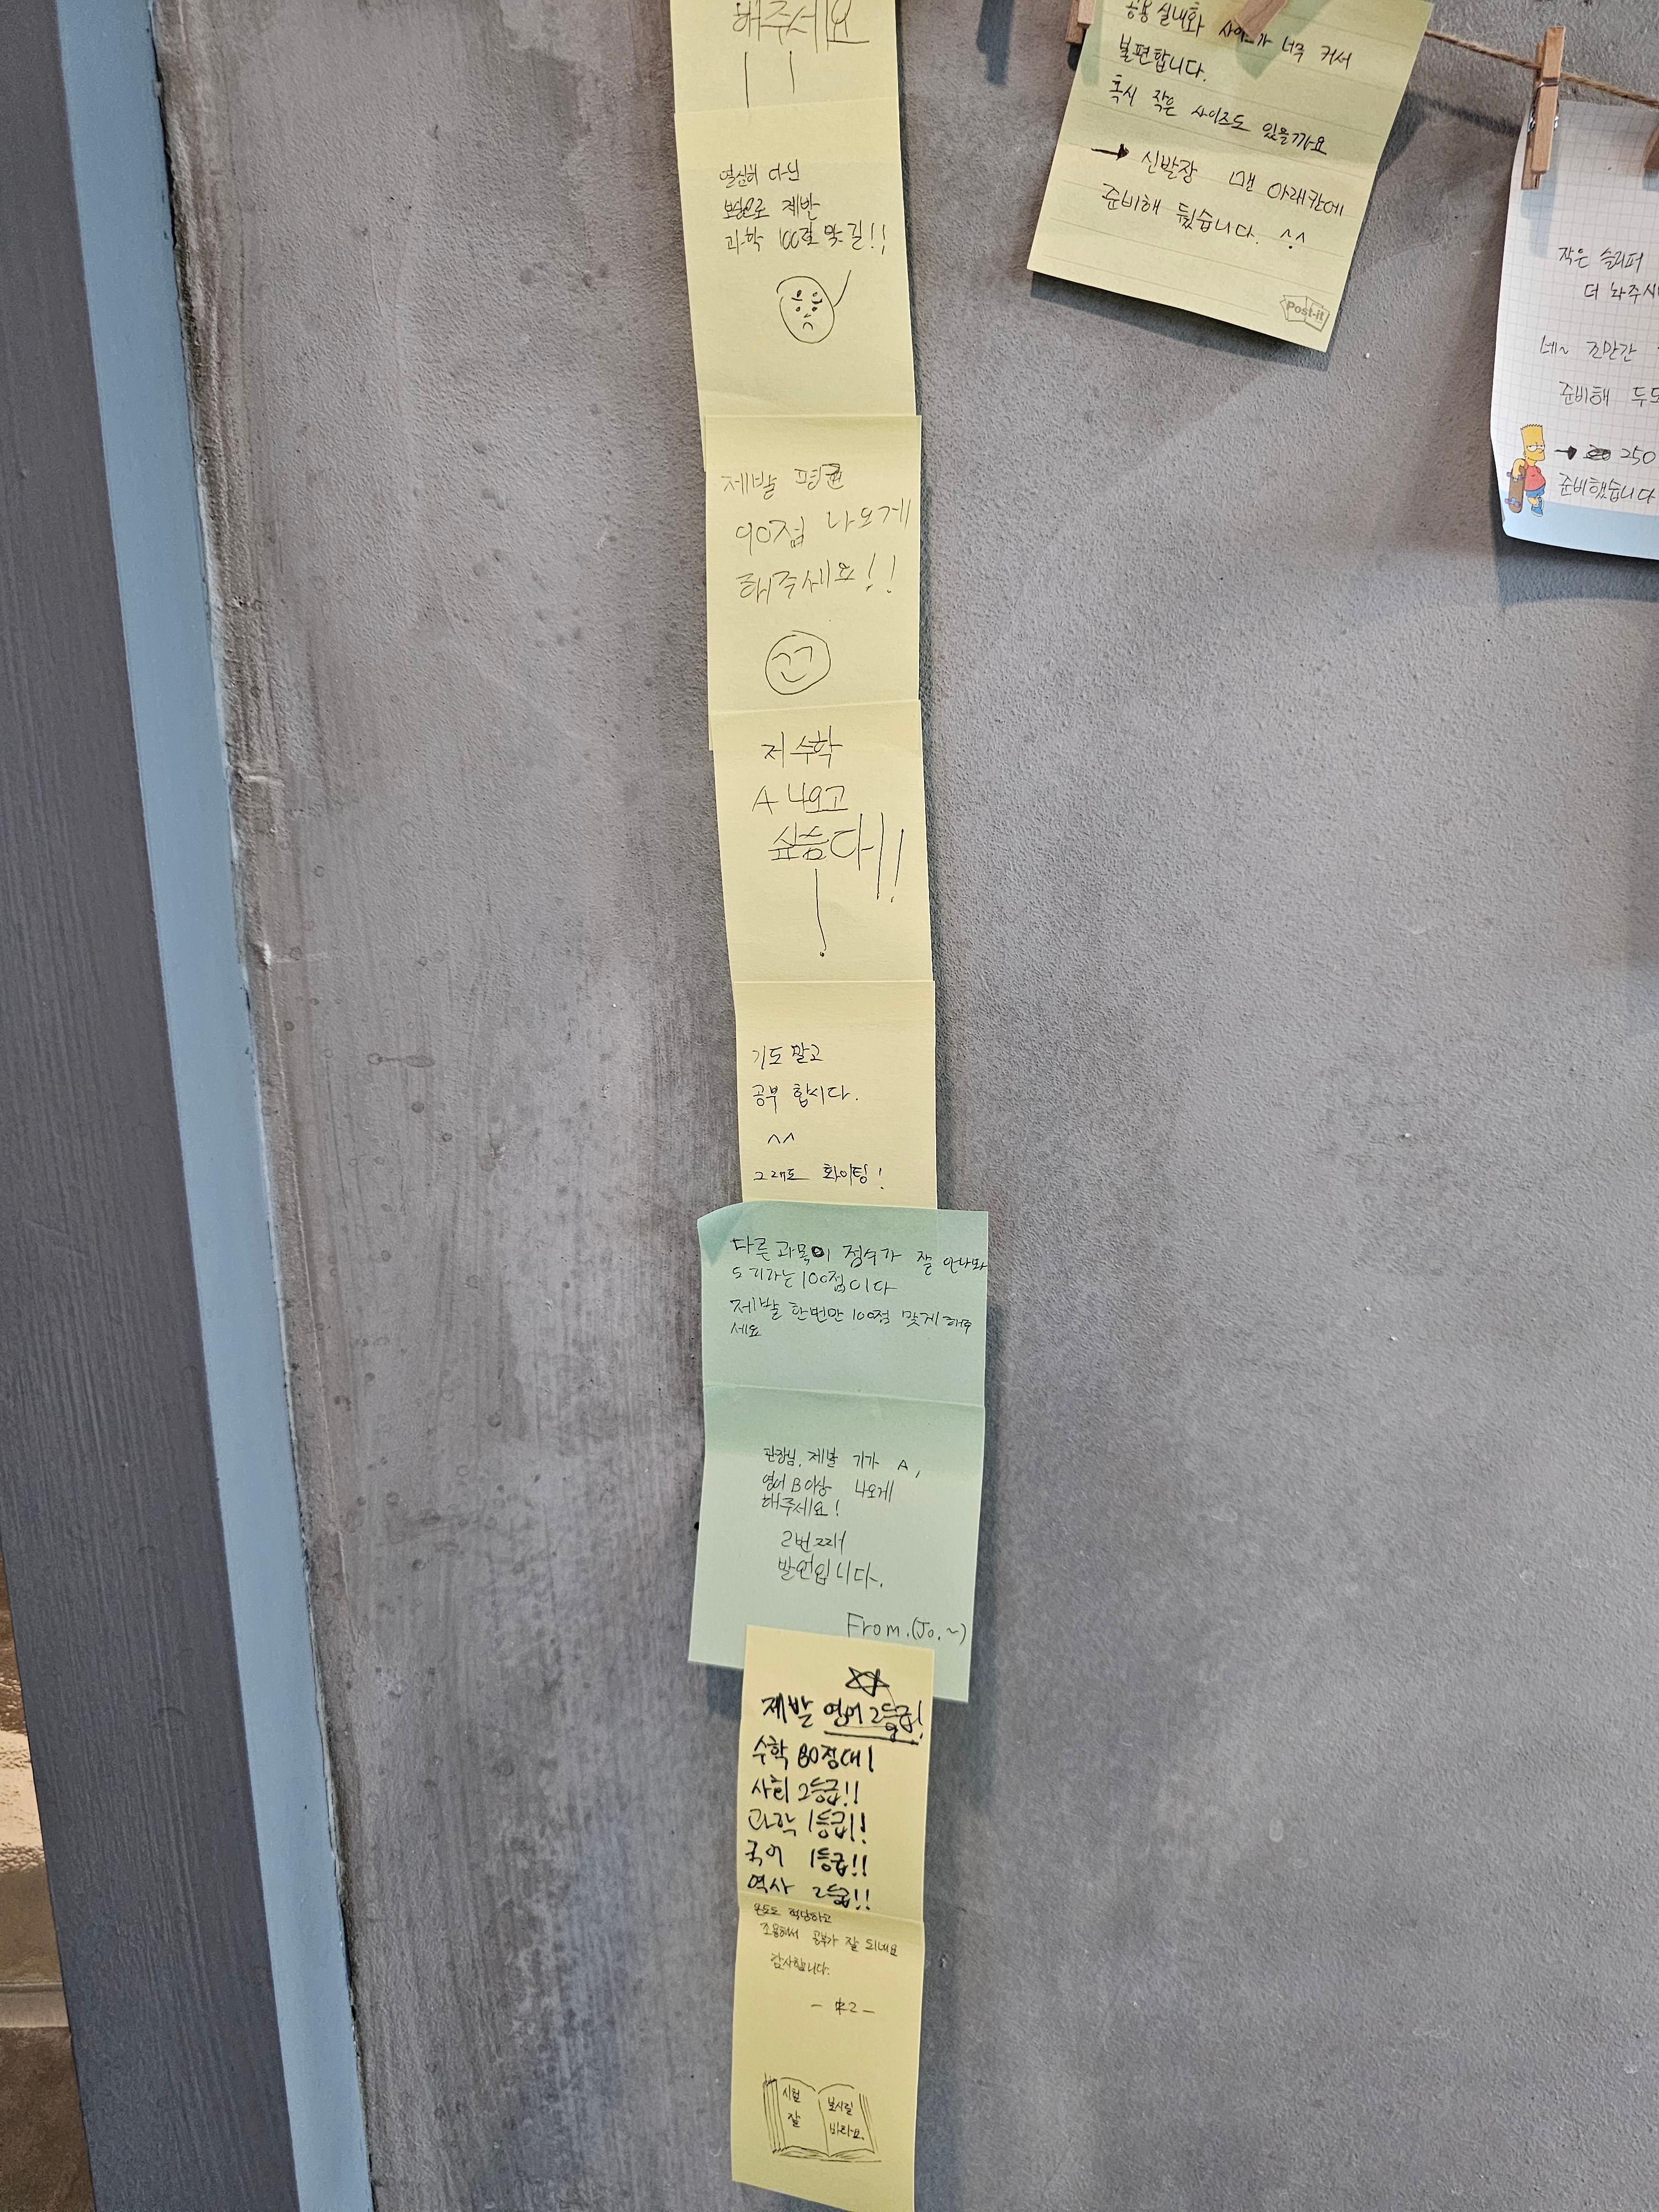 해주세요
열심히 다닌
보상으로 제발
과학 100점 맞길!!
제발 평균
90점 나오게
해주세요!!
저 수학
A 나오고
싶습다!!
기도 말고
공부 합시다.
^^
그래도 화이팅!
다른 과목이 점수가 잘 안나와
도 기가는 100점이다
제발 한번만 100점 맞게 해주
세요
관장님, 제발 기가 A,
영어 B이상 나오게
해주세요!
2번째
발언입니다.
From.(Jo.~)
제발 영어 2등급!
수학 80점대!
사회 2등급!!
과학 1등급!!
국어 1등급!!
역사 2등급!!
온도도 적당하고
조용해서 공부가 잘 되네요
감사합니다.
시험
잘
보시길
바라요.
공용 실내화 사이즈가 너무 커서
불편합니다.
혹시 작은 사이즈도 있을까요
→ 신발장 맨 아래칸에
준비해 뒀습니다. ^^
Post-it
작은 슬리퍼
더 놔주시
네~ 조만간
준비해 두도
→ 250
준비했습니다